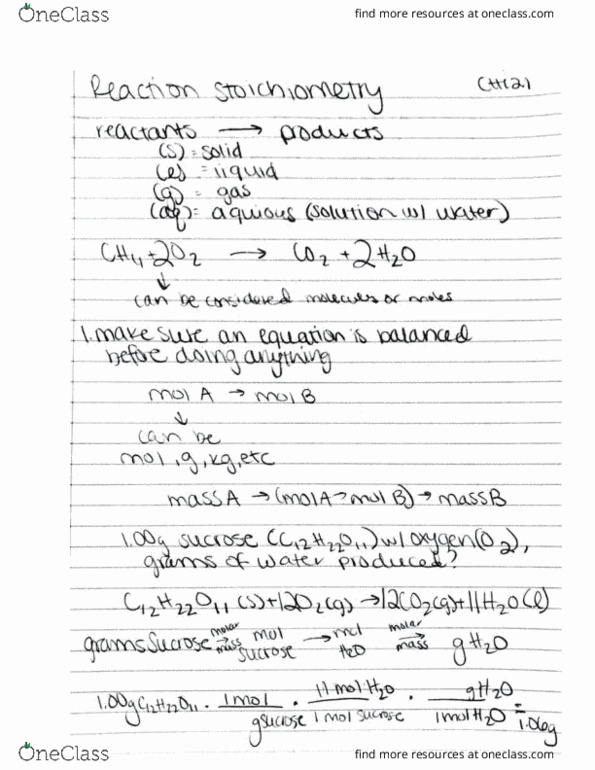 OneClass find more resources at oneclass.com
Reaction stoichiometry CH12.1
reactants → products
(s) = solid
(l) = liquid
(g) = gas
(aq) = aquious (solution w/ water)
CH₄+2O₂ → CO₂ + 2H₂O
↓
can be considered molecules or moles
1. make sure an equation is balanced
before doing anything
mol A → mol B
↓
can be
mol, g, kg, etc
mass A → (mol A → mol B) → mass B
1.00g sucrose (C₁₂H₂₂O₁₁) w/ oxygen (O₂),
grams of water produced?
C₁₂H₂₂O₁₁ (s) + 12O₂(g) → 12CO₂(g) + 11H₂O(l)
grams Sucrose molar mass → mol sucrose → mol H₂O molar mass → g H₂O
1.00g C₁₂H₂₂O₁₁ · 1 mol / g sucrose · 11 mol H₂O / 1 mol sucrose · g H₂O / 1 mol H₂O = 1.06g
OneClass find more resources at oneclass.com